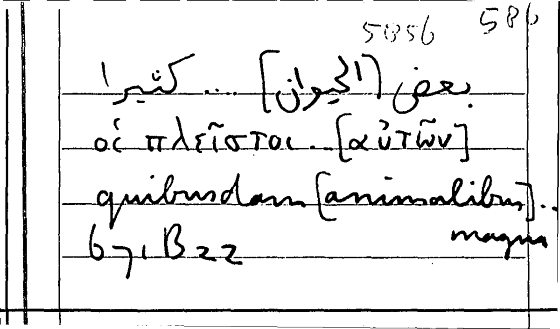 5856 586
بعض [الحيوان] ... كثيرا
οἱ πλεῖστοι ... [αὐτῶν]
quibusdam [animalibus] ..
magna
671 B 22